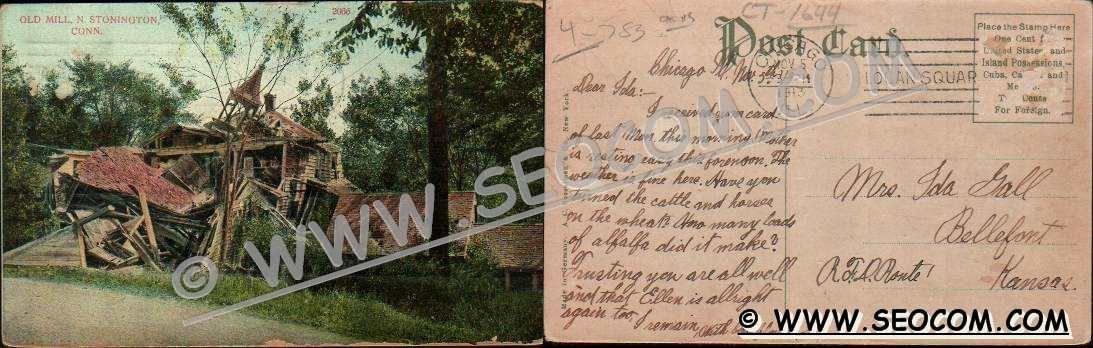 OLD MILL, N STONINGTON,
CONN.
2066
© WWW.SEOCOM.COM
4-753
CT-1644
Post Card
Place the Stamp Here
One Cent
United States and
Island Possessions,
Cuba, and
Me
Two Cents
For Foreign.
CHICAGO
NOV 5
1913
LOGAN SQUAR
Chicago Ill. Nov.
Dear Ida:-
Received your card
of last Mon. this morning. Mother
is resting easy this forenoon. The
weather is fine here. Have you
turned the cattle and horses
on the wheat? How many loads
of alfalfa did it make?
Trusting you are all well
and that Ellen is allright
again too, I remain,
Mrs. Ida Gall
Bellefont
R.F.D. Route 1
Kansas.
Made in Germany.
New York
© WWW.SEOCOM.COM